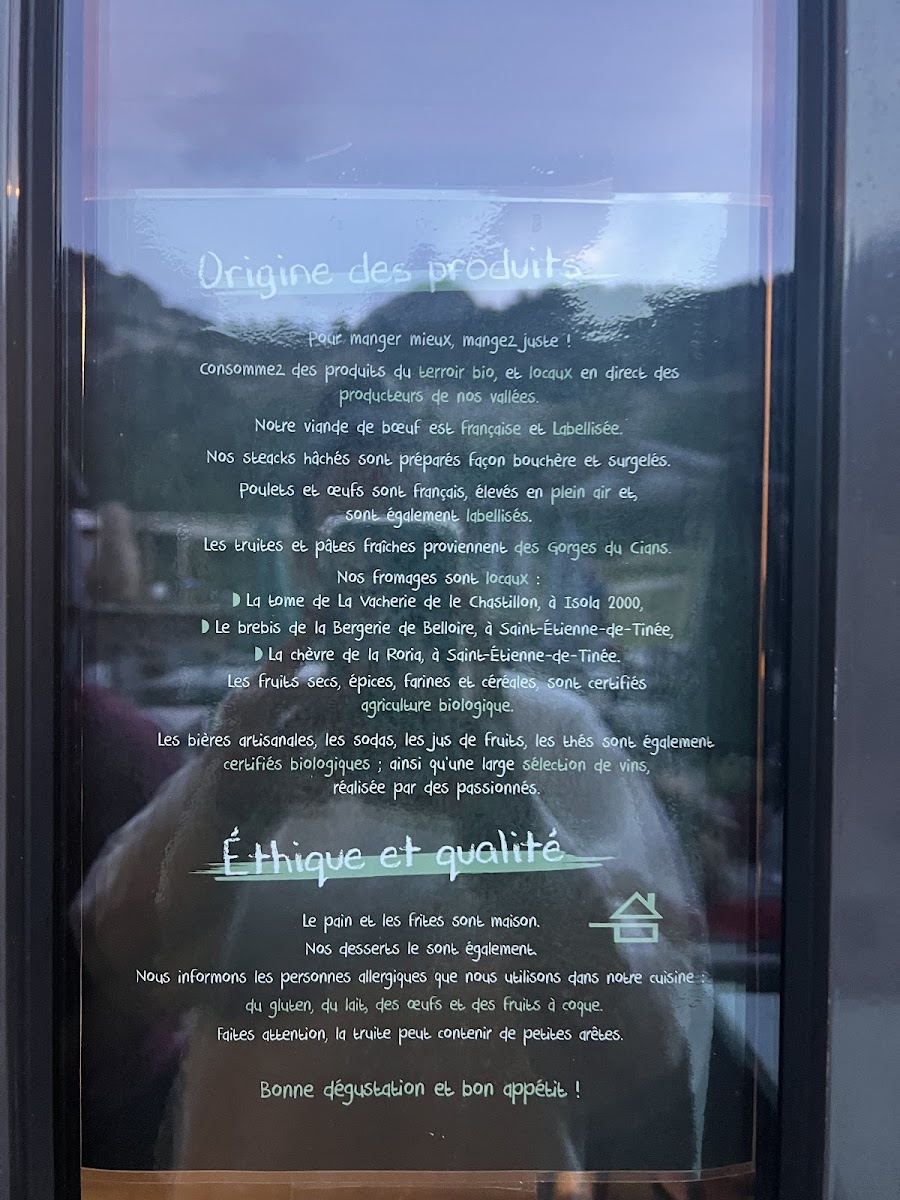 Origine des produits
Pour manger mieux, mangez juste !
Consommez des produits du terroir bio, et locaux en direct des
producteurs de nos vallées.
Notre viande de bœuf est française et Labellisée.
Nos steacks hâchés sont préparés façon bouchère et surgelés.
Poulets et œufs sont français, élevés en plein air et,
sont également labellisés.
Les truites et pâtes fraîches proviennent des Gorges du Cians.
Nos fromages sont locaux :
La tome de La Vacherie de le Chastillon, à Isola 2000,
Le brebis de la Bergerie de Belloire, à Saint-Étienne-de-Tinée,
La chèvre de la Roria, à Saint-Étienne-de-Tinée.
Les fruits secs, épices, farines et céréales, sont certifiés
agriculture biologique.
Les bières artisanales, les sodas, les jus de fruits, les thés sont également
certifiés biologiques ; ainsi qu'une large sélection de vins,
réalisée par des passionnés.
Éthique et qualité
Le pain et les frites sont maison.
Nos desserts le sont également.
Nous informons les personnes allergiques que nous utilisons dans notre cuisine :
du gluten, du lait, des œufs et des fruits à coque.
Faites attention, la truite peut contenir de petites arêtes.
Bonne dégustation et bon appétit !